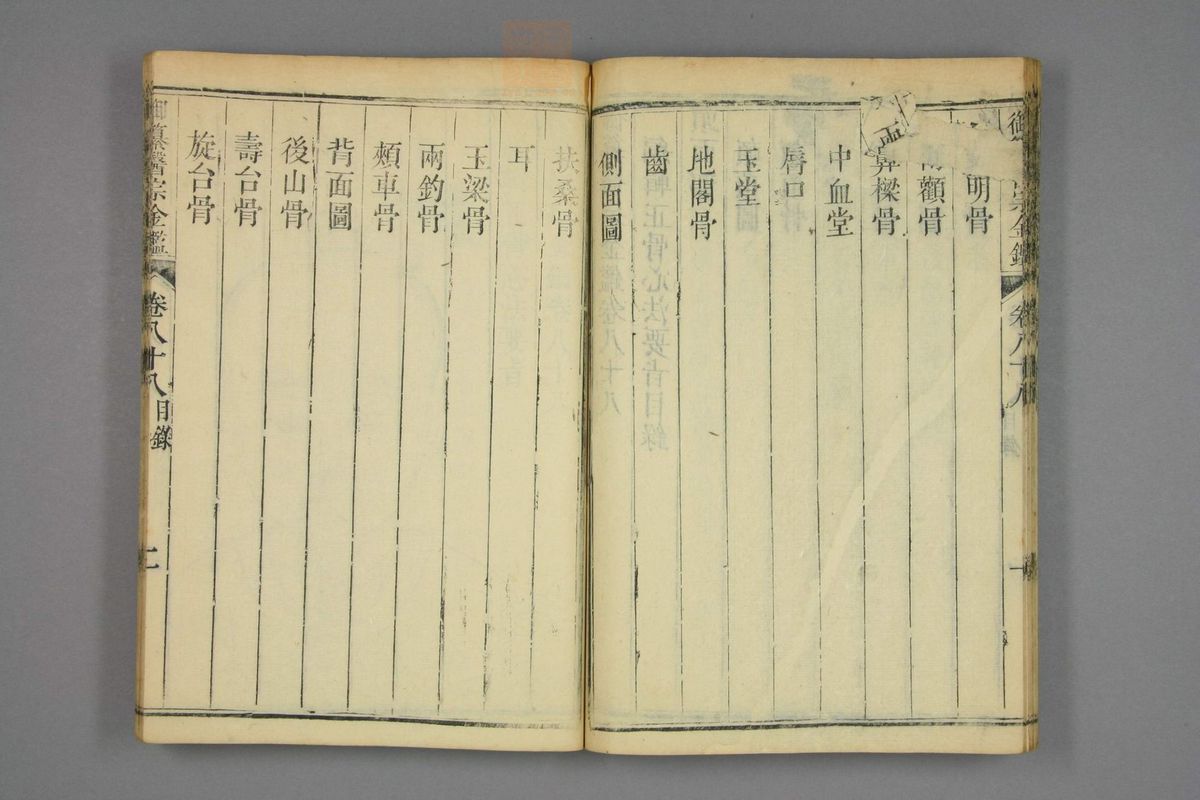 明骨
顴骨
兩鼻樑骨
中血堂
唇口
玉堂
地閣骨
齒
側面圖
扶桑骨
耳
玉梁骨
兩釣骨
頰車骨
背面圖
後山骨
壽台骨
旋台骨
御纂醫宗金鑑
卷八十八目錄
二